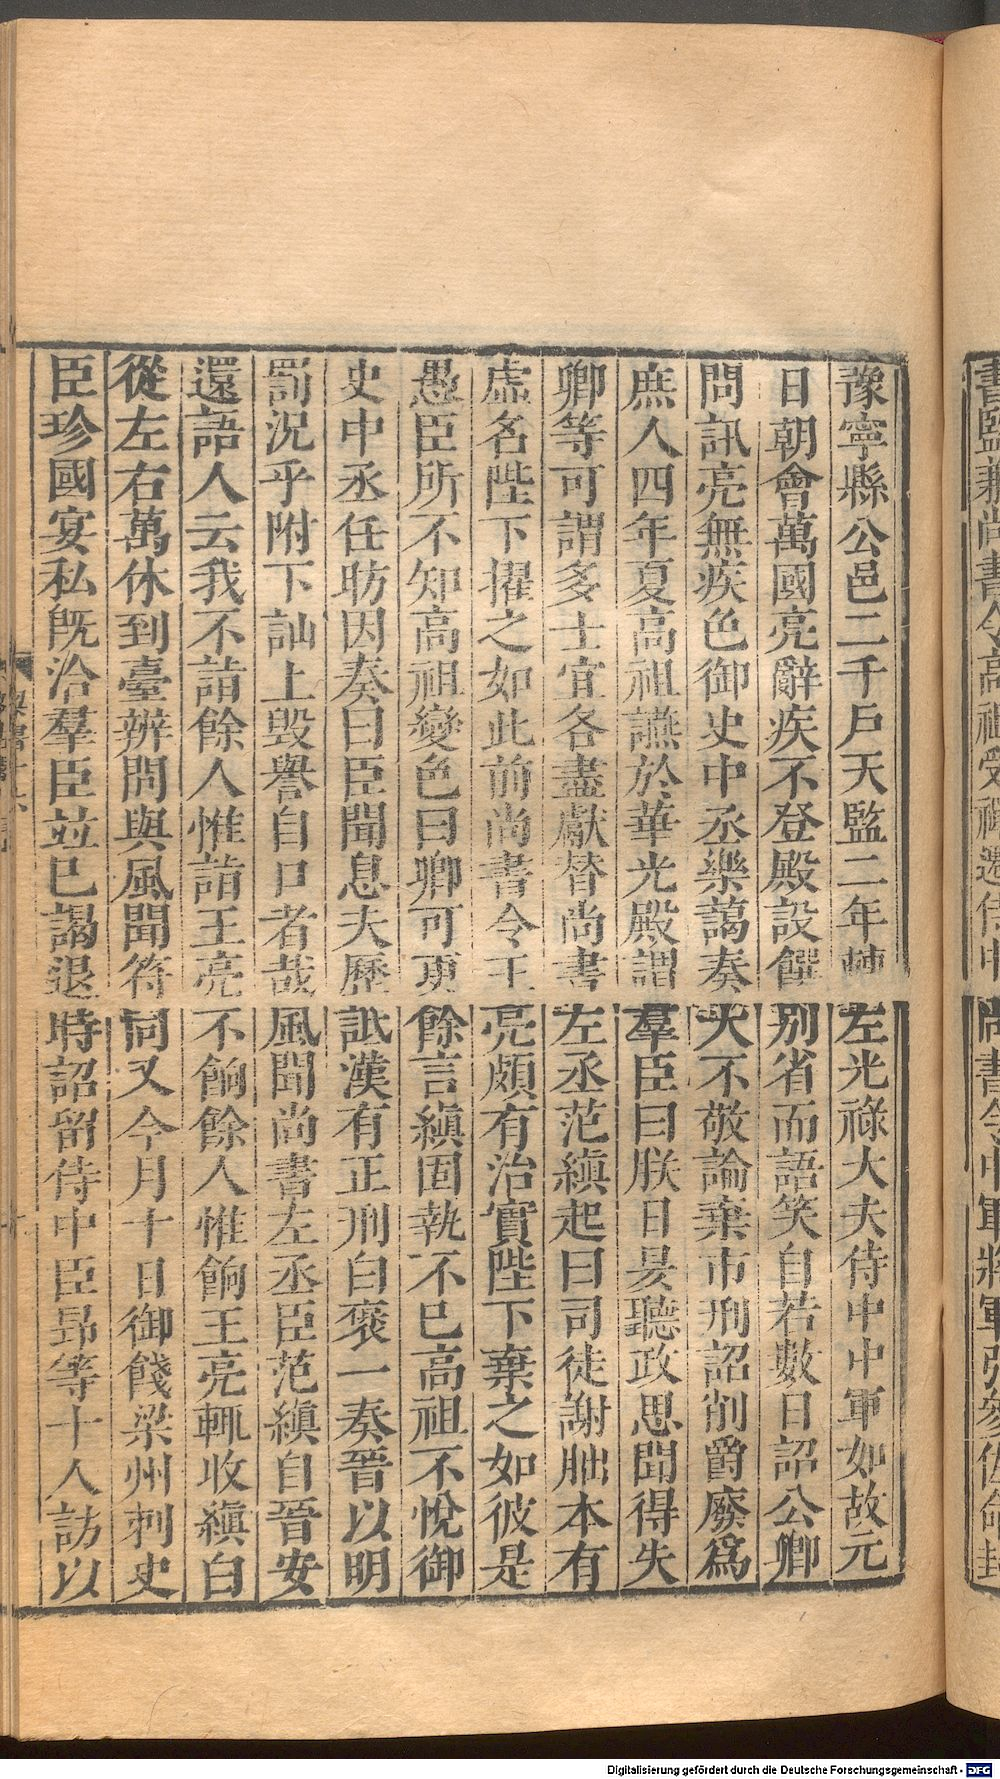 書監兼尚書令高祖受禪遷侍中尚書令中軍將軍引參佐命封
豫寧縣公邑二千戶天監二年轉左光祿大夫侍中中軍如故元
日朝會萬國亮辭疾不登殿設饌別省而語笑自若數日詔公卿
問訊亮無疾色御史中丞樂藹奏大不敬論棄市刑詔削爵廢爲
庶人四年夏高祖讌於華光殿謂羣臣曰朕日昃聽政思聞得失
卿等可謂多士宜各盡獻替尚書左丞范縝起曰司徒謝朏本有
虛名陛下擢之如此前尚書令王亮頗有治實陛下棄之如彼是
愚臣所不知高祖變色曰卿可更餘言縝固執不已高祖不悅御
史中丞任昉因奏曰臣聞息夫歷詆漢有正刑白褒一奏晉以明
罰況乎附下訕上毀譽自口者哉風聞尚書左丞臣范縝自晉安
還語人云我不詣餘人惟詣王亮不餉餘人惟餉王亮輒收縝白
從左右萬休到臺辨問與風聞符同又今月十日御餞梁州刺史
臣珍國宴私既洽羣臣並已謁退時詔留侍中臣昂等十人訪以
Digitalisierung gefördert durch die Deutsche Forschungsgemeinschaft - DFG